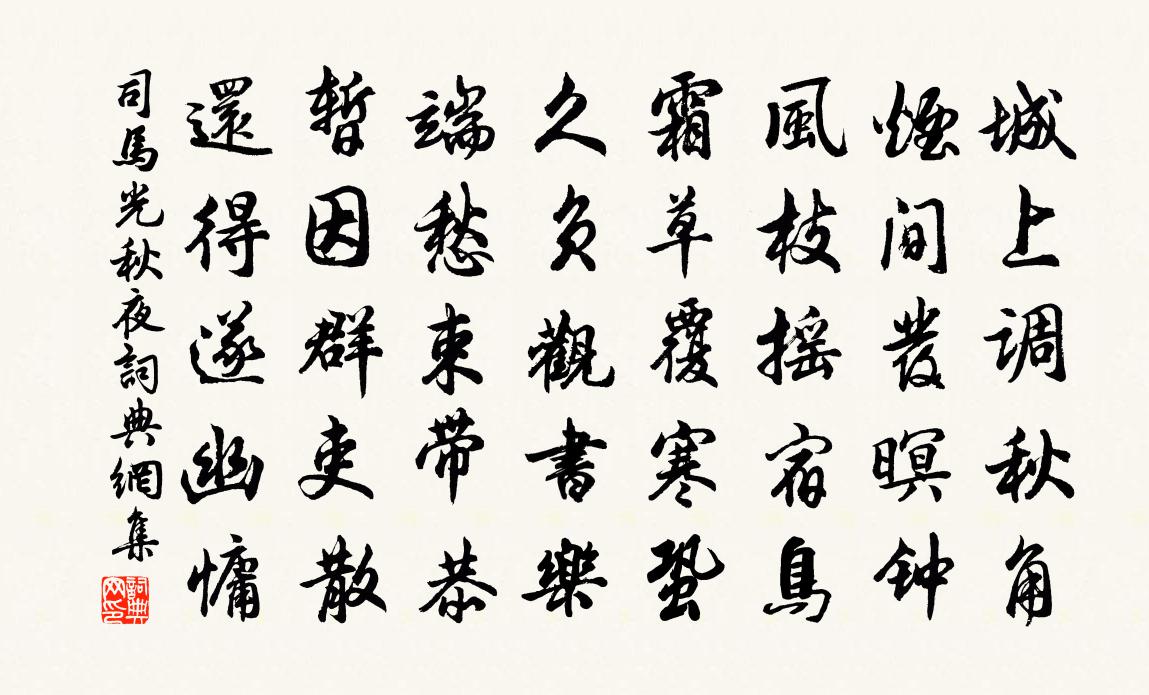 城上调秋角
煙间發暝钟
風枝摇宿鳥
霜草覆寒蛩
久负觀書樂
端愁束带恭
暫因群吏散
還得遂幽慵
司馬光秋夜詞典網集
詞典网印